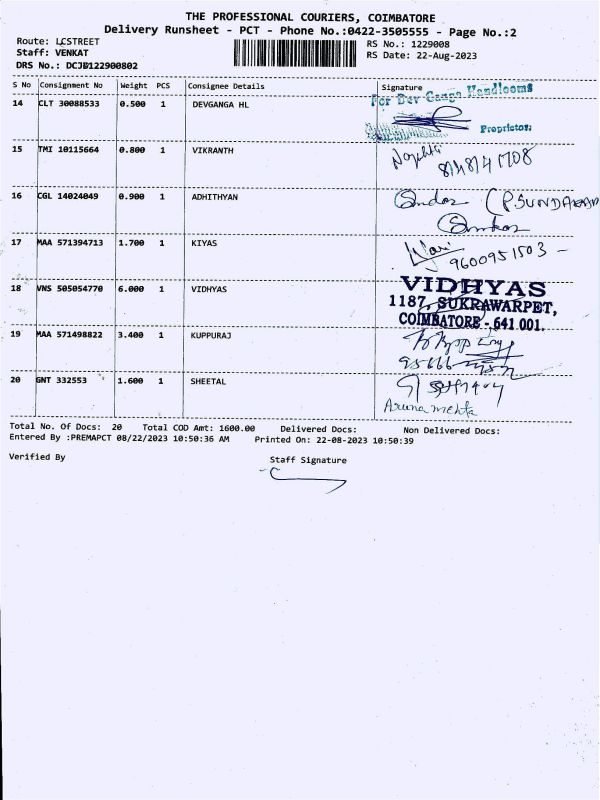 THE PROFESSIONAL COURIERS, COIMBATORE
Delivery Runsheet - PCT - Phone No.:0422-3505555 - Page No.:2
Route: LCSTREET
RS No.: 1229008
Staff: VENKAT
RS Date: 22-Aug-2023
DRS No.: DCJB122900802
S No Consignment No Weight PCS Consignee Details Signature
For Dev Ganga Handlooms
14 CLT 30088533 0.500 1 DEVGANGA HL
Proprietor.
15 TMI 10115664 0.800 1 VIKRANTH
16 CGL 14024049 0.900 1 ADHITHYAN
17 MAA 571394713 1.700 1 KIYAS
9600951503
18 VNS 505054770 6.000 1 VIDHYAS
VIDHYAS
1187, SUKRAWARPET,
COIMBATORE - 641 001.
19 MAA 571498822 3.400 1 KUPPURAJ
20 GNT 332553 1.600 1 SHEETAL
Aruna mehta
Total No. Of Docs: 20 Total COD Amt: 1600.00 Delivered Docs: Non Delivered Docs:
Entered By :PREMAPCT 08/22/2023 10:50:36 AM Printed On: 22-08-2023 10:50:39
Verified By
Staff Signature